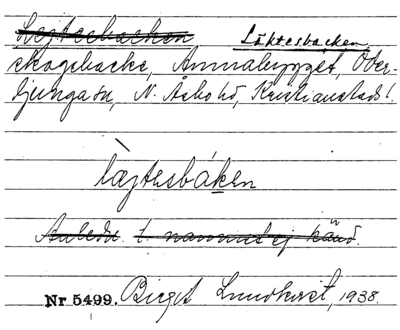 Lejtesbacken Löktesbacken
skogsbacke, Annabygget, Över-
ljungadn, N. Åsbo hd, Kristianstads l.
læjtesbáken
Anledn. t. namnet ej känd.
Nr 5499. Birgit Lundkvist, 1938.